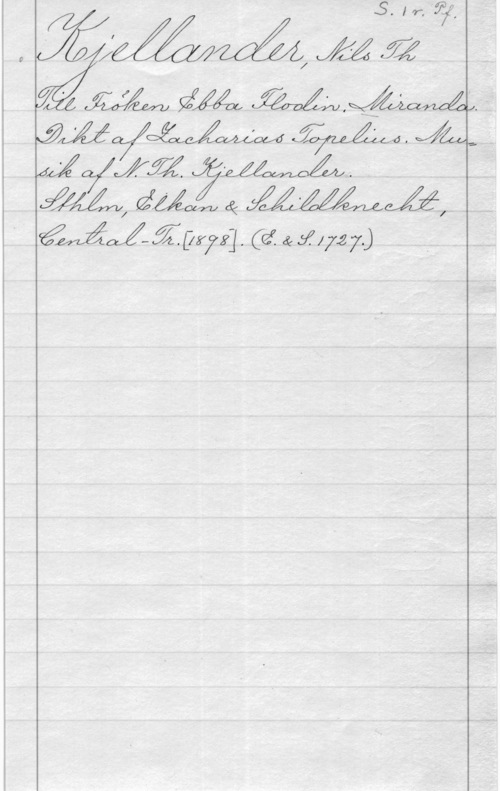 S. 1 r. Pf.
Kjellander, Nils Th
Till Fröken Ebba Flodin. Miranda.
Dikt af Zacharias Topelius. Mu=
sik af N. Th. Kjellander.
Sthlm, Elkan & Schildknecht,
Central-Tr. [1898]. (E. & S. 1727.)